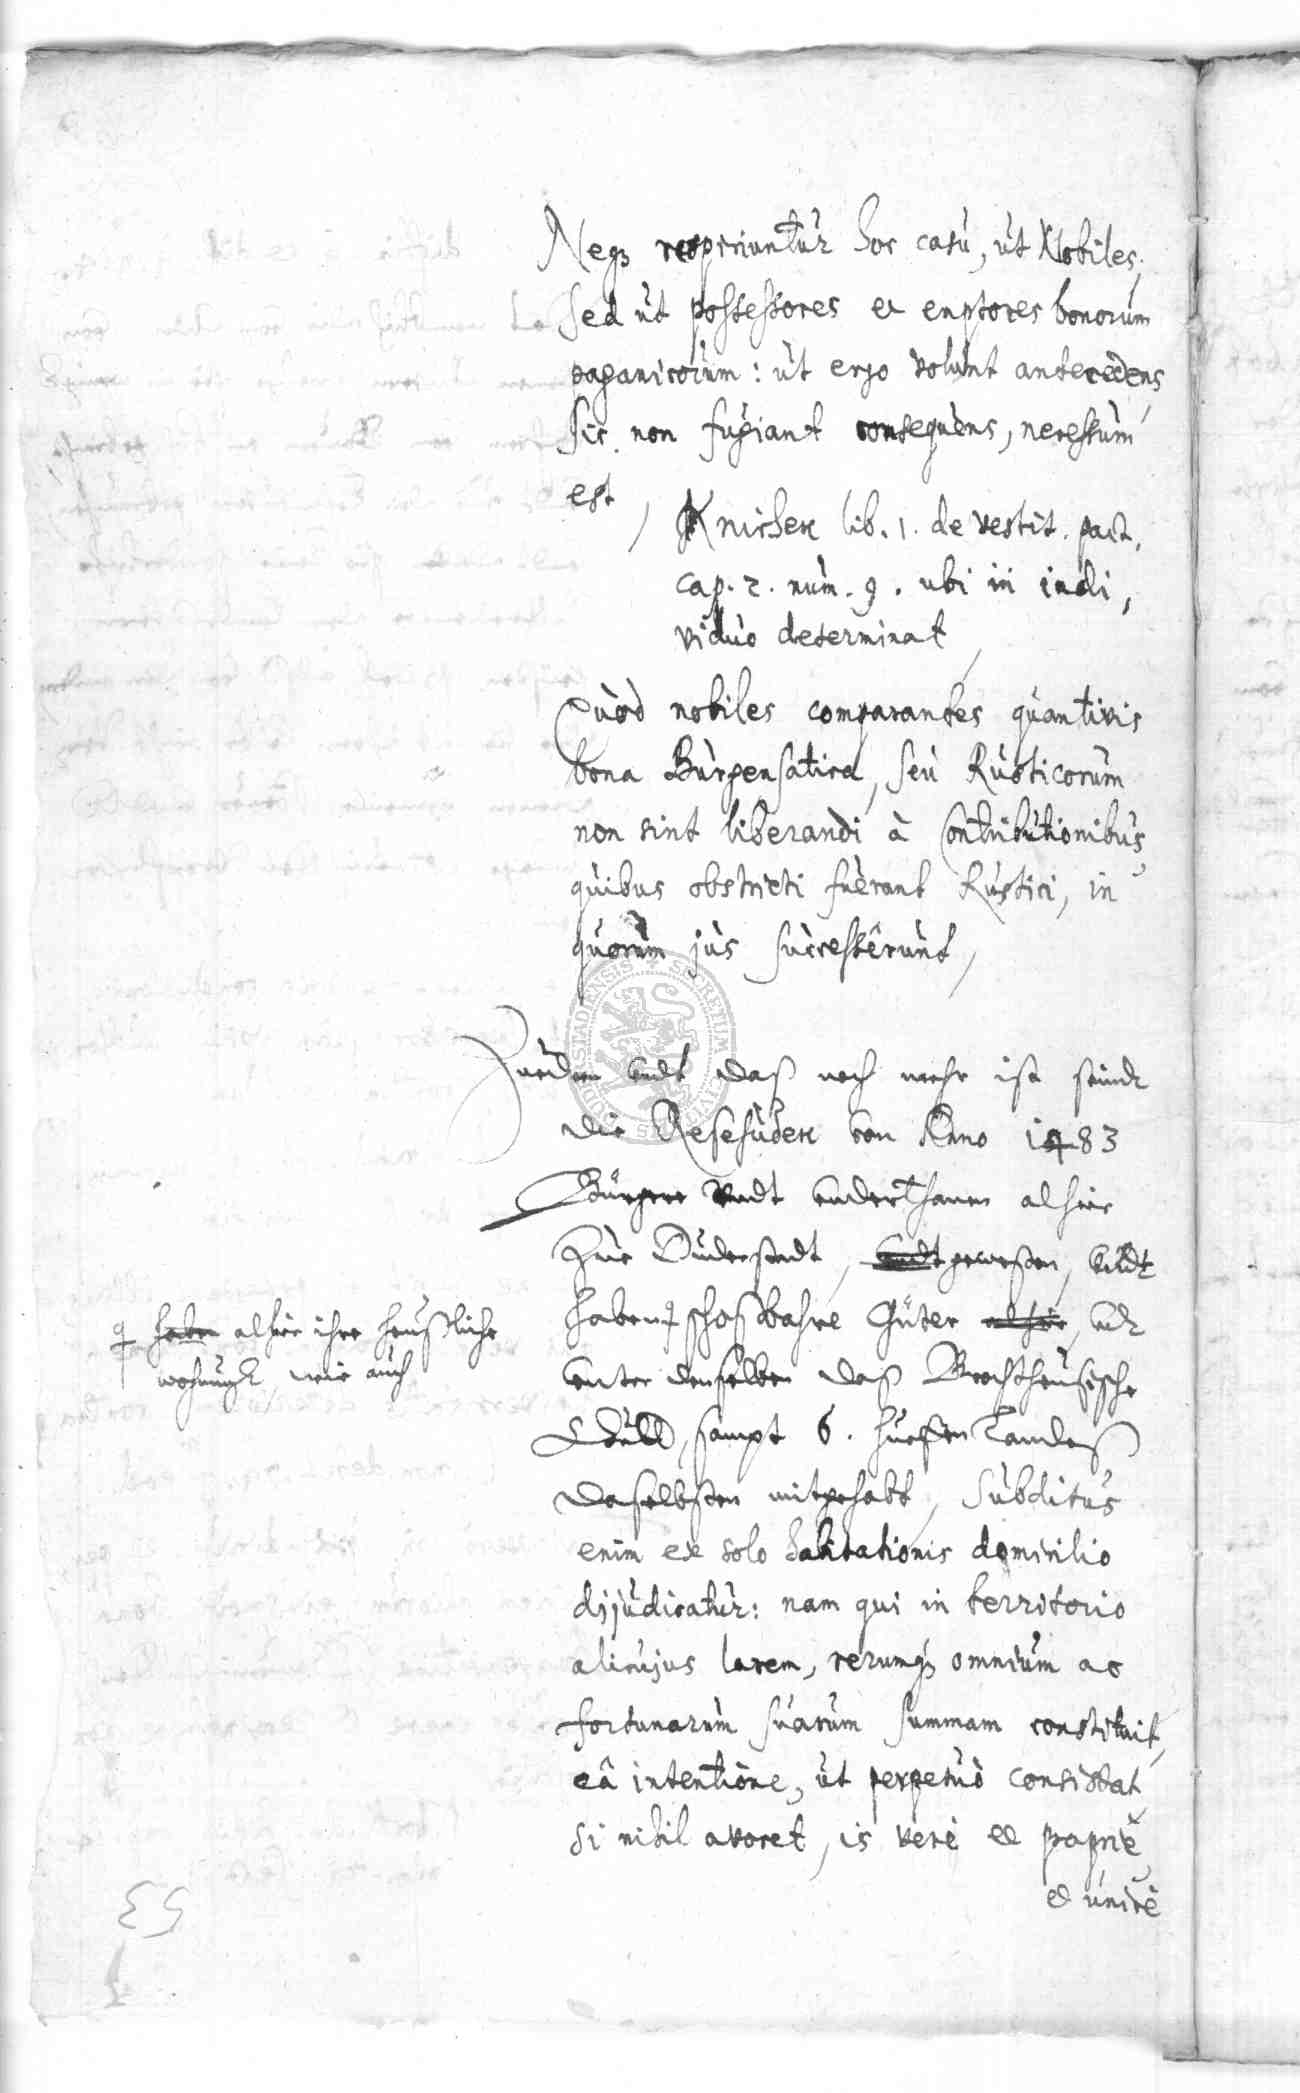 Neq₃ respiciuntur hoc casu, ut Nobiles,
sed ut possessores et emptores bonorum
paganicorum: ut ergo volunt antecedens
sic non fugiant consequens, necessum
est,
Knichen lib. 1. de vestit. pact.
cap. 2. num. 9. ubi in indi,
viduo determinat
Quod nobiles comparantes quantivis
bona Burgensatica, seu Rusticorum
non sint liberandi à Contributionibus
quibus obstricti fuerant Rustici, in
quorum jus successêrunt,
Zudem undt daß noch mehr ist seindt
die Resehuden von Anno 1483
Bürgere undt underthanen alhier
Zue Duderstadt, undt gewesen, undt
haben schoßbahre Güter alhier, undt
haben alhier ihre heußliche
wohnungh wie auch
unter denselben daß Brochtheusische
Guth, sampt 6. hueffen Landeß
daselbsten mitgehabt, Subditus
enim ex solo habitationis domicilio
dijudicatur: nam qui in territorio
alicujus larem, rerumq₃ omnium ac
fortunarum suarum summam constituit,
eâ intentione, ut perpetuò consistat
si nihil avocet, is verè et propriè
et unicè
SIGILLUM SECRETUM CIVITATIS DUDERSTADIENSIS